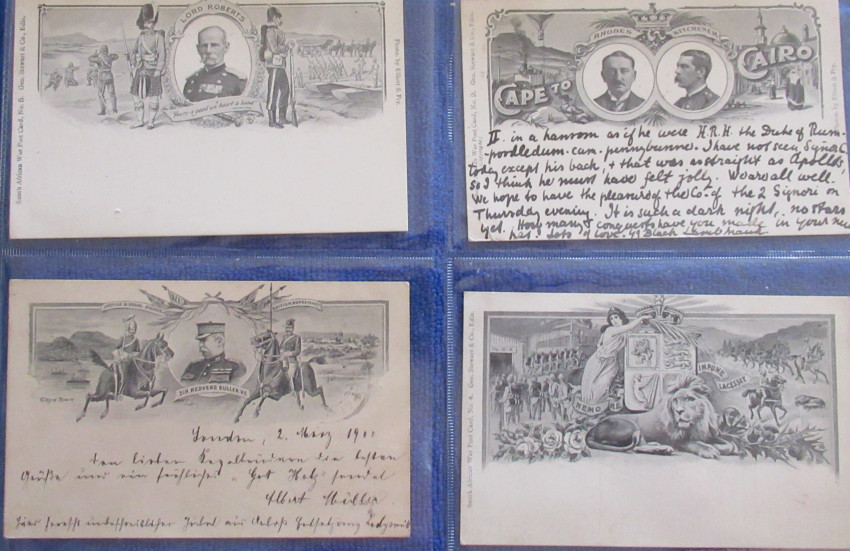 LORD ROBERTS
South African War Post Card, No. 5. Geo. Stewart & Co., Edin.
Photo. by Elliott & Fry.
RHODES
KITCHENER
CAPE TO
CAIRO
War Post Card, No. 2. Geo. Stewart & Co., Edin.
II. in a hansom as if he were H.R.H. the Duke of Plum-
-porridledum-cum-pennybunnel. I have not seen Signor C.
today except his back, & that was as straight as Apollo's
so I think he must have felt jolly. We are all well.
We hope to have the pleasure of the Co. of the 2 Signori on
Thursday evening. It is such a dark night, no stars
yet. How many conquests have you made in your new
hat? Lots of love.
SIR REDVERS BULLER. V.C.
London, 2. März 1900
den lieben Kegelbrüdern die besten
Grüße und ein fröhliches "Gut Holz" sendet
Albert Müller
South African War Post Card, No. 4. Geo. Stewart & Co., Edin.
NEMO
IMPUNE
LACESSET